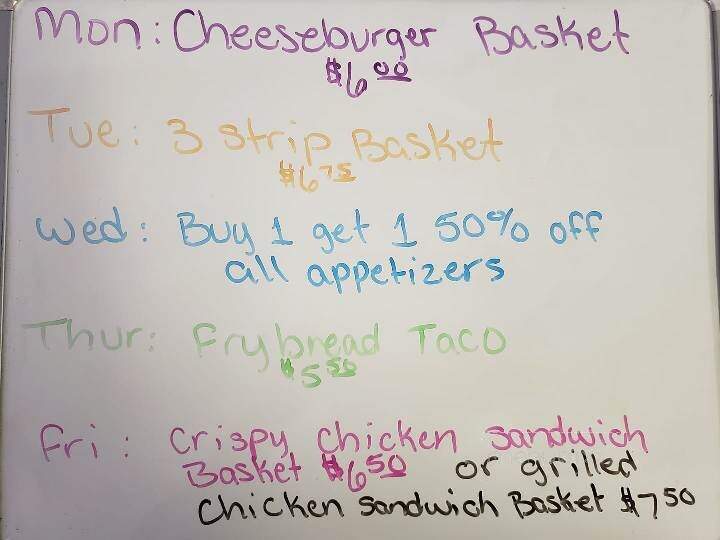 Mon: Cheeseburger Basket
$6.00
Tue: 3 strip Basket
$6.75
Wed: Buy 1 get 1 50% off
all appetizers
Thur: Frybread Taco
$5.50
Fri: Crispy Chicken sandwich
Basket $6.50 or grilled
Chicken sandwich Basket $7.50